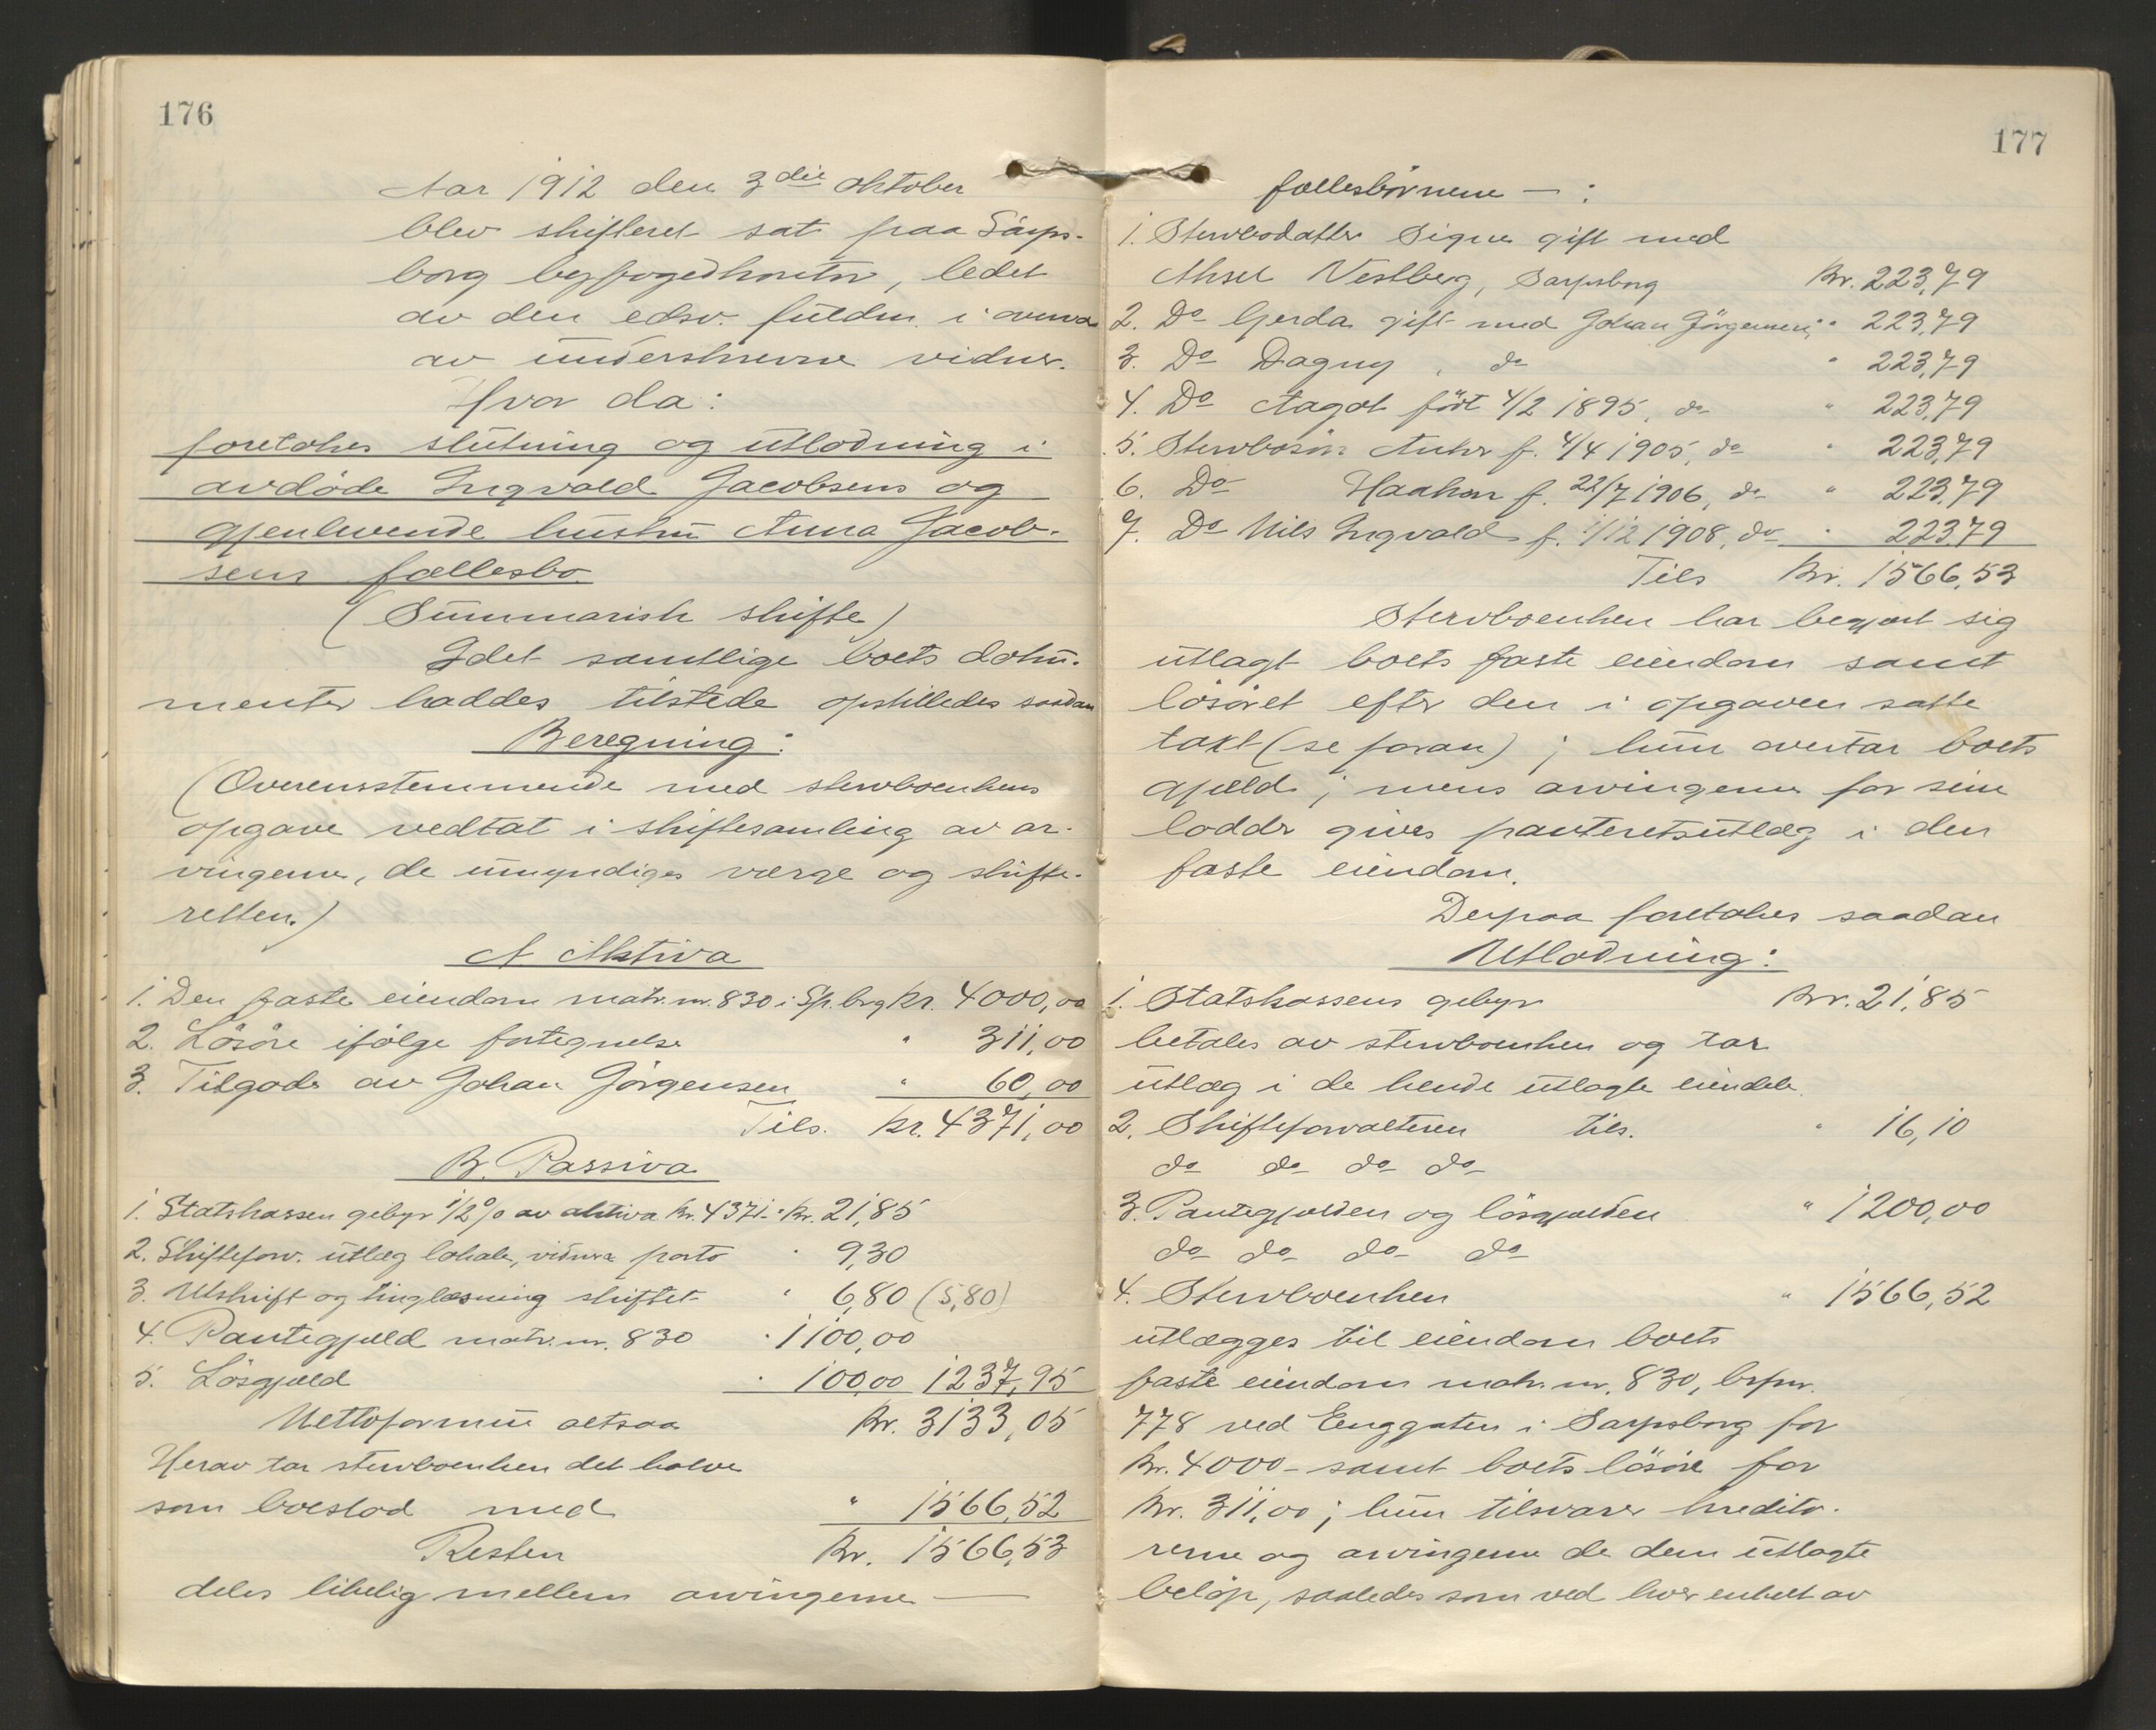 176
Aar 1912 den 3die oktober
blev skifteret sat paa Sarps-
borg byfogedkontor, ledet
av den edsv. fuldm. i overvær
av underskrevne vidner.
Hvor da:
foretokes slutning og utlodning i
avdöde Ingvald Jacobsens og
gjenlevende hustru Anna Jacob-
sens fællesbo
(Summarisk skifte)
Idet samtlige boets doku-
menter haddes tilstede opstilledes saadan
Beregning:
(Overensstemmende med stervboenkens
opgave vedtat i skiftesamling av ar-
vingerne, de umyndiges værge og skifte-
retten.)
A Aktiva
1. Den faste eiendom matr. nr. 830 i Sp.brg kr. 4000,00
2. Lösöre ifölge fortegnelse " 311,00
3. Tilgode av Johan Jörgensen " 60,00
Tils. kr. 4371,00
B. Passiva
1. Statskassen gebyr 1/2 % av aktiva kr. 4371.- kr. 21,85
2. Skifteforv. utlæg lokale, vidner porto " 9,30
3. Utskrift og tinglæsning skiftet " 6,80 (5,80)
4. Pantegjæld matr. nr. 830 " 1100,00
5. Lösgjæld " 100,00 1237,95
Nettoformue altsaa Kr. 3133,05
Herav tar stervboenken det halve
som boeslod med " 1566,52
Resten Kr. 1566,53
deles likelig mellem arvingerne —
177
fællesbörnene — :
1. Stervbodatter Signe gift med
Aksel Vestberg, Sarpsborg Kr. 223,79
2. Do Gerda gift med Johan Jörgensen, " 223,79
3. Do Dagny, do " 223,79
4. Do Aagot födt 4/2 1895, do " 223,79
5. Stervbosön f. 4/4 1905, do " 223,79
6. Do Haakon f. 22/7 1906, do " 223,79
7. Do Nils Ingvald f. 1/12 1908, do " 223,79
Tils Kr. 1566,53
Stervboenken har begjært sig
utlagt boets faste eiendom samt
lösöret efter den i opgaven satte
takt (se foran); hun overtar boets
gjæld; mens arvingerne for sine
lodder gives panteretsutlæg i den
faste eiendom.
Derpaa foretokes saadan
Utlodning:
1. Statskassens gebyr Kr. 21,85
betales av stervboenken og tar
utlæg i de hende utlagte eiendele.
2. Skifteforvalteren tils. " 16,10
do do do do
3. Pantegjælden og lösgjælden " 1200,00
do do do do
4. Stervboenken " 1566,52
utlægges til eiendom boets
faste eiendom matr. nr. 830, brpnr.
778 ved Enggaten i Sarpsborg for
Kr. 4000.- samt boets lösöre for
Kr. 311,00; hun tilsvarer kredito-
rerne og arvingerne de dem utlagte
belöp, saaledes som ved hver enkelt av